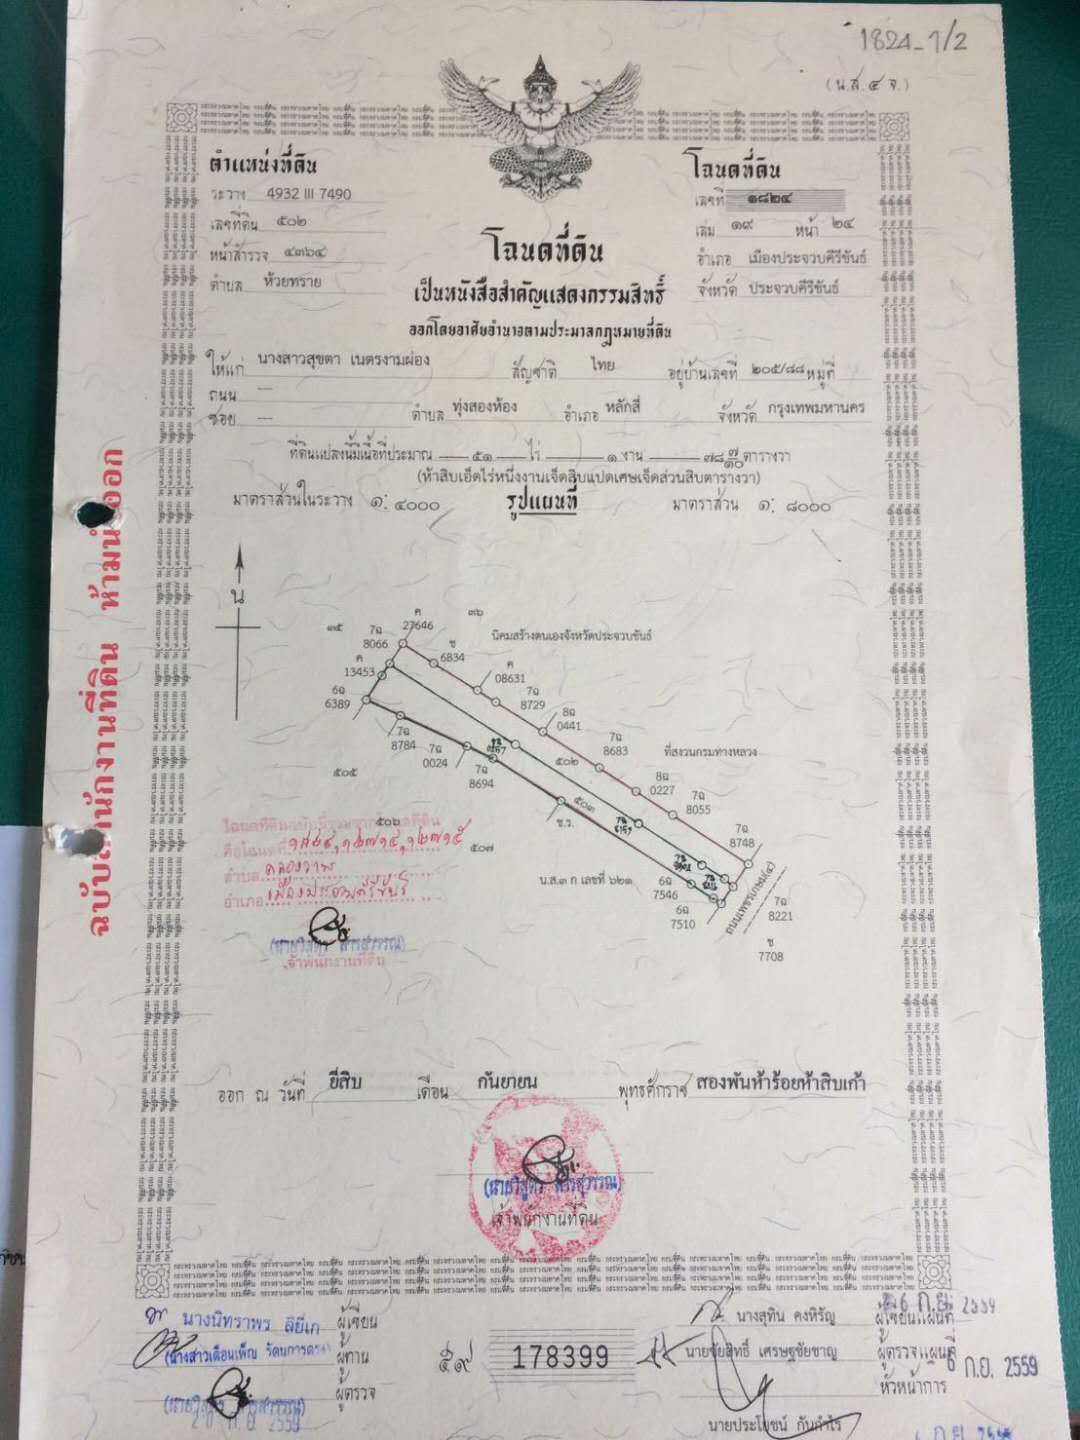 1824-1/2
(น.ส.๔ จ.)
ตำแหน่งที่ดิน
ระวาง 4932 III 7490
เลขที่ดิน ๕๐๒
หน้าสำรวจ ๔๓๖๔
ตำบล ห้วยทราย
โฉนดที่ดิน
เลขที่ ๑๘๒๔
เล่ม ๑๙ หน้า ๒๔
อำเภอ เมืองประจวบคีรีขันธ์
จังหวัด ประจวบคีรีขันธ์
โฉนดที่ดิน
เป็นหนังสือสำคัญแสดงกรรมสิทธิ์
ออกโดยอาศัยอำนาจตามประมวลกฎหมายที่ดิน
ให้แก่ นางสาวสุขตา เนตรงามผ่อง สัญชาติ ไทย อยู่บ้านเลขที่ ๒๐๕/๘๘ หมู่ที่
ถนน —
ซอย — ตำบล ทุ่งสองห้อง อำเภอ หลักสี่ จังหวัด กรุงเทพมหานคร
ที่ดินแปลงนี้มีเนื้อที่ประมาณ ๕๑ ไร่ ๑ งาน ๗๘ ๗/๑๐ ตารางวา
(ห้าสิบเอ็ดไร่หนึ่งงานเจ็ดสิบแปดเศษเจ็ดส่วนสิบตารางวา)
มาตราส่วนในระวาง ๑: ๔๐๐๐ รูปแผนที่ มาตราส่วน ๑: ๘๐๐๐
ฉบับสำนักงานที่ดิน ห้ามนำออก
น
๓๕
๓๖
ค 27646
7ฉ 8066
ช 6834
นิคมสร้างตนเองจังหวัดประจวบขันธ์
ค 13453
ค 08631
6ฉ 6389
7ฉ 8729
8ฉ 0441
7ฉ 8784
7ฉ 0024
7ฉ 8694
7ฉ 8683
ที่สงวนกรมทางหลวง
๕๐๒
๕๐๕
8ฉ 0227
7ฉ 8055
๕๐๓
ช.ร.
๕๐๖
๕๐๗
7ฉ 8748
น.ส.๓ ก เลขที่ ๖๒๑
6ฉ 7546
6ฉ 7510
ถนนเพชรเกษม(๔)
7ฉ 8221
ช 7708
คือโฉนดที่ ๑๘๒๔, ๑๒๗๑๔, ๑๒๗๑๕
ตำบล คลองวาฬ
อำเภอ เมืองประจวบคีรีขันธ์
(นายวิสูตร สารสุวรรณ)
เจ้าพนักงานที่ดิน
ออก ณ วันที่ ยี่สิบ เดือน กันยายน พุทธศักราช สองพันห้าร้อยห้าสิบเก้า
(นายวิสูตร สารสุวรรณ)
เจ้าพนักงานที่ดิน
นางนิทราพร ลิยี่เก ผู้เขียน
ผู้ทาน
ผู้ตรวจ
๕๙ 178399
นางสุทิน คงหิรัญ ผู้เขียนแผนที่
นายชัยสิทธิ์ เศรษฐชัยชาญ ผู้ตรวจแผนที่
หัวหน้าการ
6 ก.ย. 2559
นายประโยชน์ กันกำไร